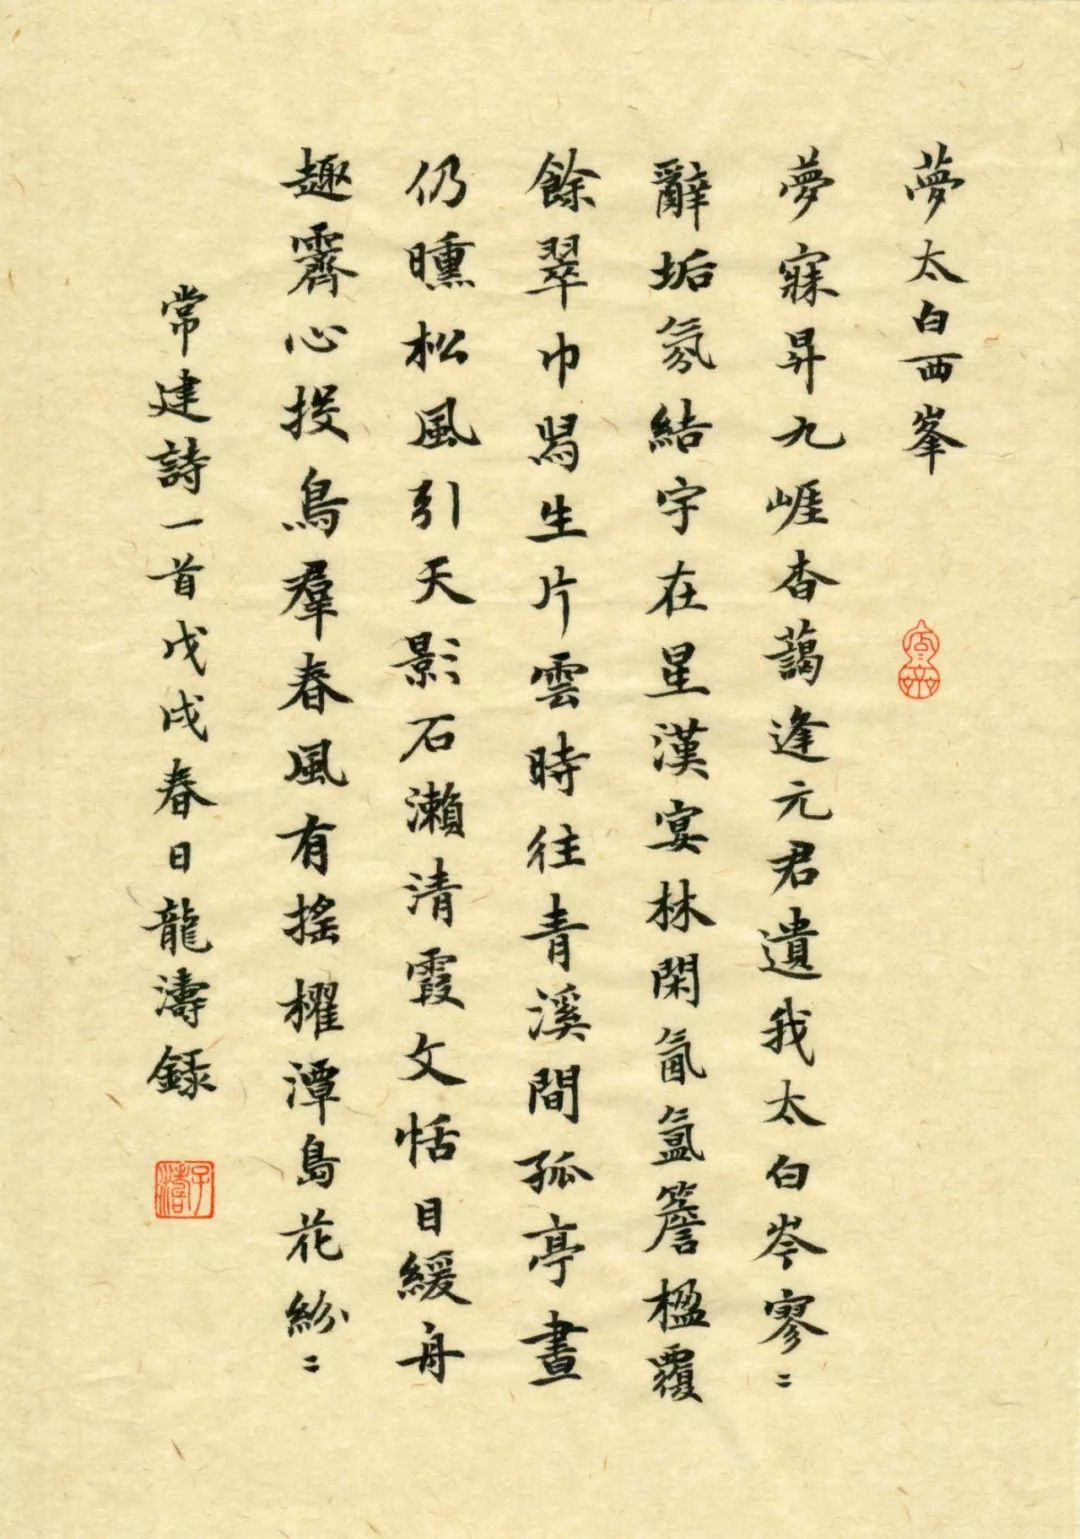 夢太白西峯
夢寐昇九崕杳藹逢元君遺我太白岑寥〻
辭垢氛結宇在星漢宴林閑氤氳簷楹覆
餘翠巾舄生片雲時往青溪間孤亭晝
仍曛松風引天影石瀨清霞文恬目緩舟
趣霽心投鳥羣春風有搖櫂潭島花紛〻
常建詩一首戊戌春日龍濤錄
子濤